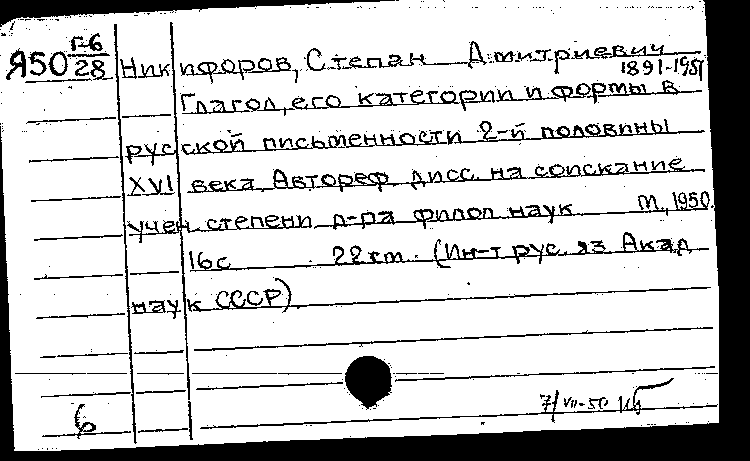 Я50 Г-6/28 Никифоров, Степан Дмитриевич
1891-1951
Глагол, его категории и формы в
русской письменности 2-й половины
XVI века. Автореф. дисс. на соискание
учен степени д-ра филол наук М., 1950.
16с 22 см. (Ин-т рус. яз Акад
наук СССР)
6 7/VII-50